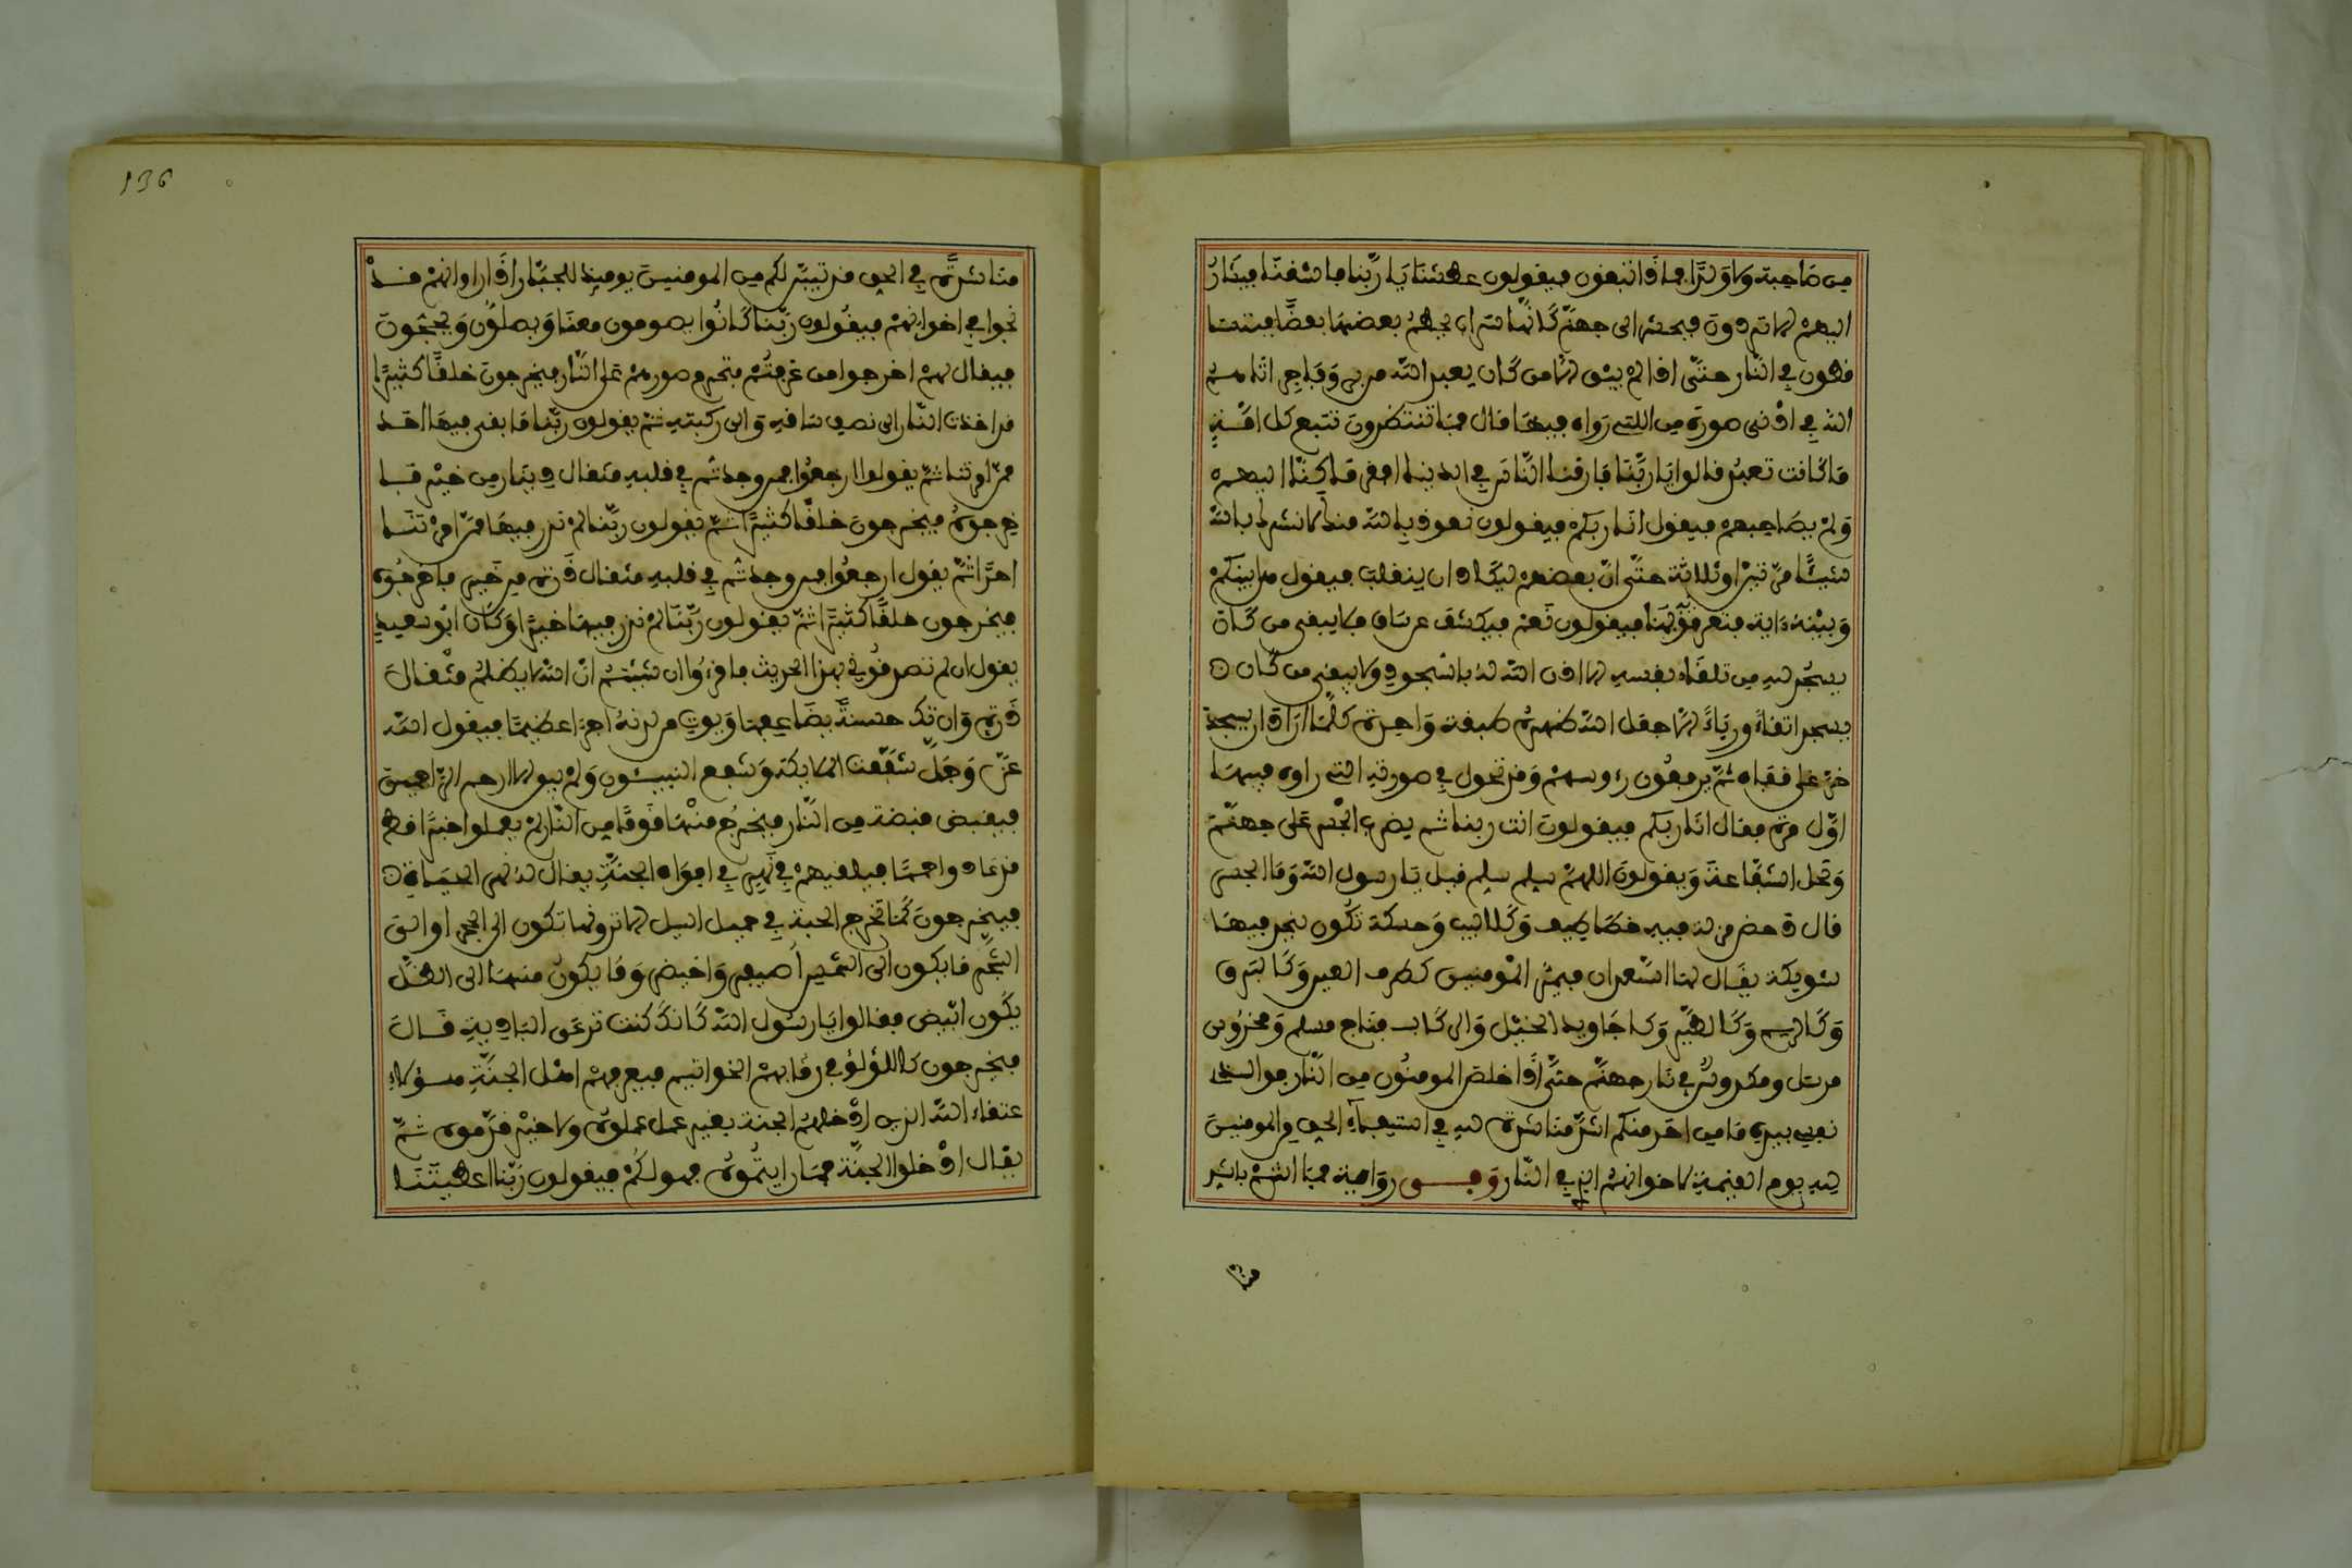 من صاحبة ولا ولد فما ذا تبغون فيقولون عطشنا يا ربنا فاسقنا فيشار
اليهم الا تردون فيحشر الى جهنم كانها سراب يحطم بعضها بعضا فيتسا
قطون في النار حتى اذا لم يبق الا من كان يعبد الله من بر وفاجر اتاهم
الله في ادنى صورة من التي رواه فيها قال فما تنتظرون تتبع كل امة
ما كانت تعبد قالوا يا ربنا فارقنا الناس في الدنيا افقر ما كنا اليهم
ولم نصاحبهم فيقول انا ربكم فيقولون نعوذ بالله منك لا نشرك بالله
شيئا مرتين او ثلاثة حتى ان بعضهم ليكاد ان ينقلب فيقول هل بينكم
وبينه ءاية فتعرفونه بها فيقولون نعم فيكشف عن ساق فلا يبقى من كان
يسجد لله من تلقاء نفسه الا اذن الله له بالسجود ولا يبقى من كان
يسجد اتقاء ورياء الا جعل الله ظهره طبقة واحدة كلما اراد ان يسجد
خر على قفاه ثم يرفعون رءوسهم وقد تحول في صورته التي راوه فيها
اول مرة فقال انا ربكم فيقولون انت ربنا ثم يضرب الجسر على جهنم
وتحل الشفاعة ويقولون اللهم سلم سلم قيل يا رسول الله وما الجسر
قال دحض مزلة فيه خطاطيف وكلاليب وحسكة تكون بنجد فيها
شويكة يقال لها السعدان فيمر المومنين كطرف العين وكالبرق
وكالريح وكالطير وكاجاويد الخيل والركاب فناج مسلم ومخدوش
مرسل ومكدوس في نار جهنم حتى اذا خلص المومنون من النار فوالذي
نفسي بيده ما من احد منكم اشد مناشدة لله في استيفاء الحق من المومنين
لله يوم القيمة لاخوانهم الذين في النار وفي رواية فما انتم باشد
منا
136
مناشدة في الحق قد تبين لكم من المومنين يوميذ للجبار اذا راوا انهم قد
نجوا في اخوانهم فيقولون ربنا كانوا يصومون معنا ويصلون ويحجون
فيقال لهم اخرجوا من عرفتم فتحرم صورهم على النار فيخرجون خلقا كثيرا
قد اخذت النار الى نصف ساقيه والى ركبتيه ثم يقولون ربنا ما بقي فيها احد
ممن امرتنا ثم يقولوا ارجعوا فمن وجدتم في قلبه مثقال دينار من خير فا
خرجوه فيخرجون خلقا كثيرا ثم يقولون ربنا لم نذر فيها ممن امرتنا
احدا ثم يقول ارجعوا فمن وجدتم في قلبه مثقال ذرة من خير فاخرجوه
فيخرجون خلقا كثيرا ثم يقولون ربنا لم نذر فيها خيرا وكان ابو سعيد
يقول ان لم تصدقوني بهذا الحديث فاقرءوا ان شيتم ان الله لا يظلم مثقال
ذرة وان تك حسنة يضاعفها ويوت من لدنه اجرا عظيما فيقول الله
عز وجل شفعت الملايكة وشفع النبيئون ولم يبق الا ارحم الراحمين
فيقبض قبضة من النار فيخرج منها قوما من النار لم يعملوا خيرا قط
قد عادوا حمما فيلقيهم في نهر في افواه الجنة يقال له نهر الحياة
فيخرجون كما تخرج الحبة في حميل السيل الا ترونها تكون الى الحجر او الى
الشجر ما يكون الى الشمس اصيفر واخيضر وما يكون منها الى الظل
يكون ابيض فقالوا يا رسول الله كانك كنت ترعى البادية قال
فيخرجون كاللؤلؤ في رقابهم الخواتيم فيعرفهم اهل الجنة هؤلاء
عتقاء الله الذين ادخلهم الجنة بغير عمل عملوه ولا خير قدموه ثم
يقال ادخلوا الجنة فما رايتموه فهو لكم فيقولون ربنا اعطيتنا